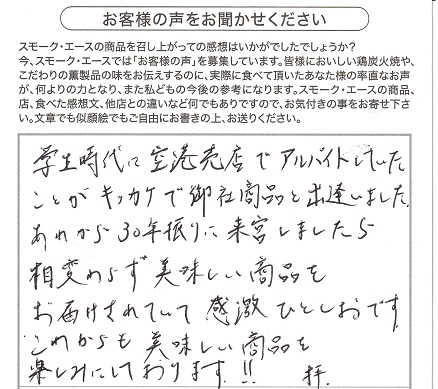 お客様の声をお聞かせください
スモーク・エースの商品を召し上がっての感想はいかがでしたでしょうか?
今、スモーク・エースでは「お客様の声」を募集しています。皆様においしい鶏炭火焼や、
こだわりの薫製品の味をお伝えするのに、実際に食べて頂いたあなた様の率直なお声
が、何よりの力となり、また私どもの今後の参考になります。スモーク・エースの商品、
店、食べた感想文、他店との違いなど何でもありですので、お気付きの事をお寄せ下さ
い。文章でも似顔絵でもご自由にお書きの上、お送りください。
学生時代に空港売店でアルバイトしていた
ことがキッカケで御社商品と出逢いました。
あれから30年振りに来宮しましたら
相変わらず美味しい商品を
お届けされていて感激ひとしおです
これからも美味しい商品を
楽しみにしております!! 拝.